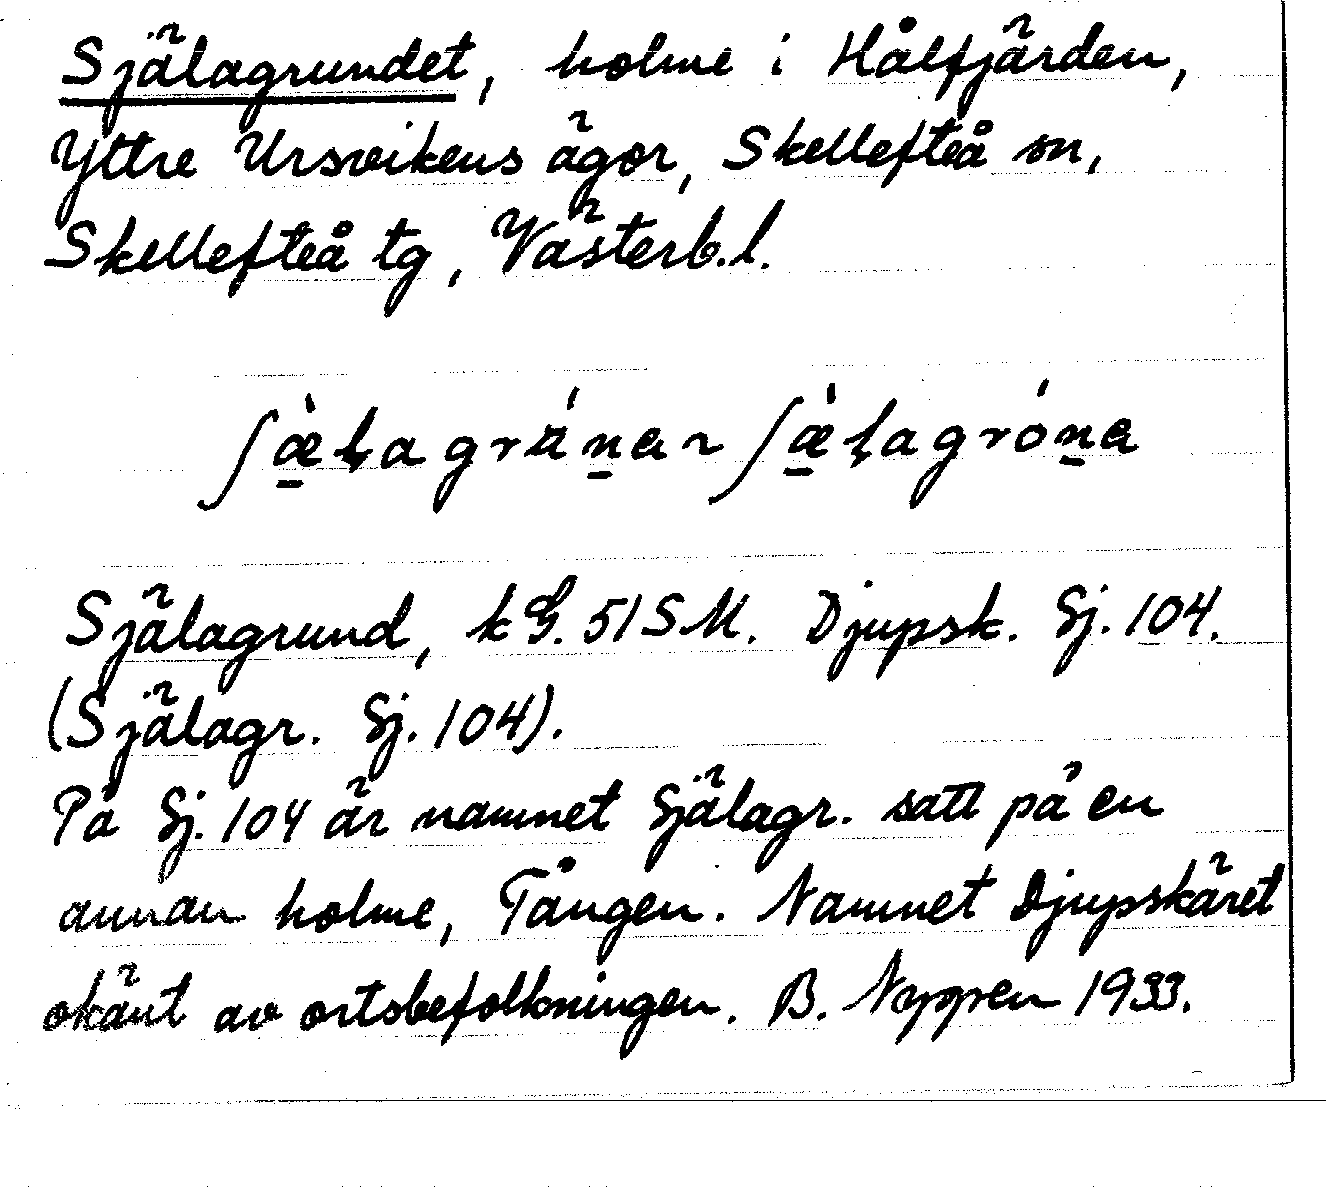 Själagrundet, holme i Hålfjärden,
Yttre Ursvikens ägor, Skellefteå sn,
Skellefteå tg, Västerb. l.
Själagrund, kG. 51 SM. Djupsk. Sj. 104.
(Själagr. Sj. 104).
På Sj. 104 är namnet Själagr. satt på en
annan holme, Tången. Namnet Djupskäret
okänt av ortsbefolkningen. B. Nyppen 1933.